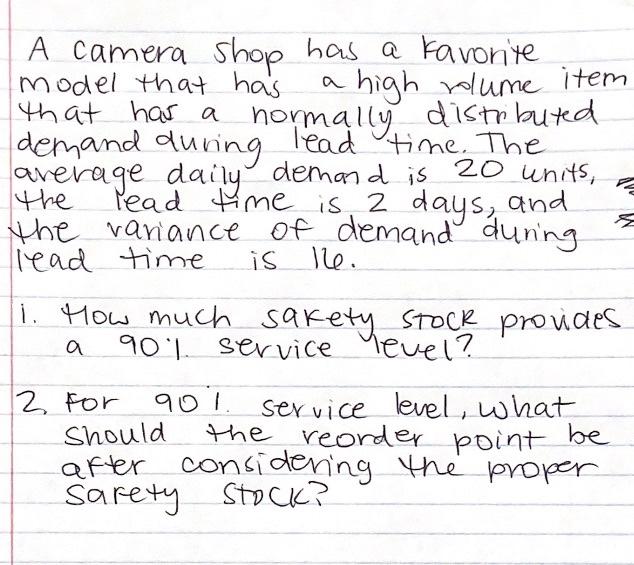 A camera shop has a favorite
model that has a high volume item
that has a normally distributed
demand during lead time. The
average daily demand is 20 units,
the lead time is 2 days, and
the variance of demand during
lead time is 16.
1. How much safety stock provides
a 90% service level?
2. For 90% service level, what
should the reorder point be
after considering the proper
safety stock?